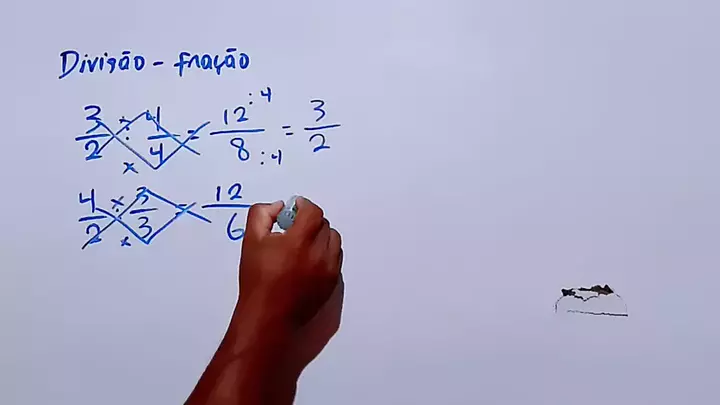 Divisão - fração
3/2 ÷ 4/4 = 12/8 :4 :4 = 3/2
4/2 ÷ 3/3 = 12/6